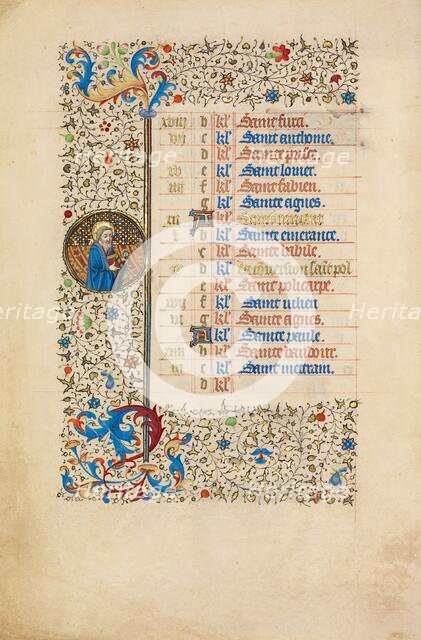 xviii d kl' Saint fursi.
vii e kl' Saint anthoine.
d kl' Saincte
xv e kl' Saint lomer.
iiii f kl' Saint fabien.
g kl' Saincte agnes.
xii A kl' Saint vincant
i b kl' Saincte emerance.
c kl' Saint babile.
ix d la conversion saīt pol
e kl' Saint policarpe.
xvii f kl' Saint iulien.
vi g kl' Saincte agnes.
A kl' Saincte paule.
xiiii b kl' Saincte baudour.
iii c kl' Saint metram.
d kl'
Heritage
Heritage
Heritage
Images
Images
Images